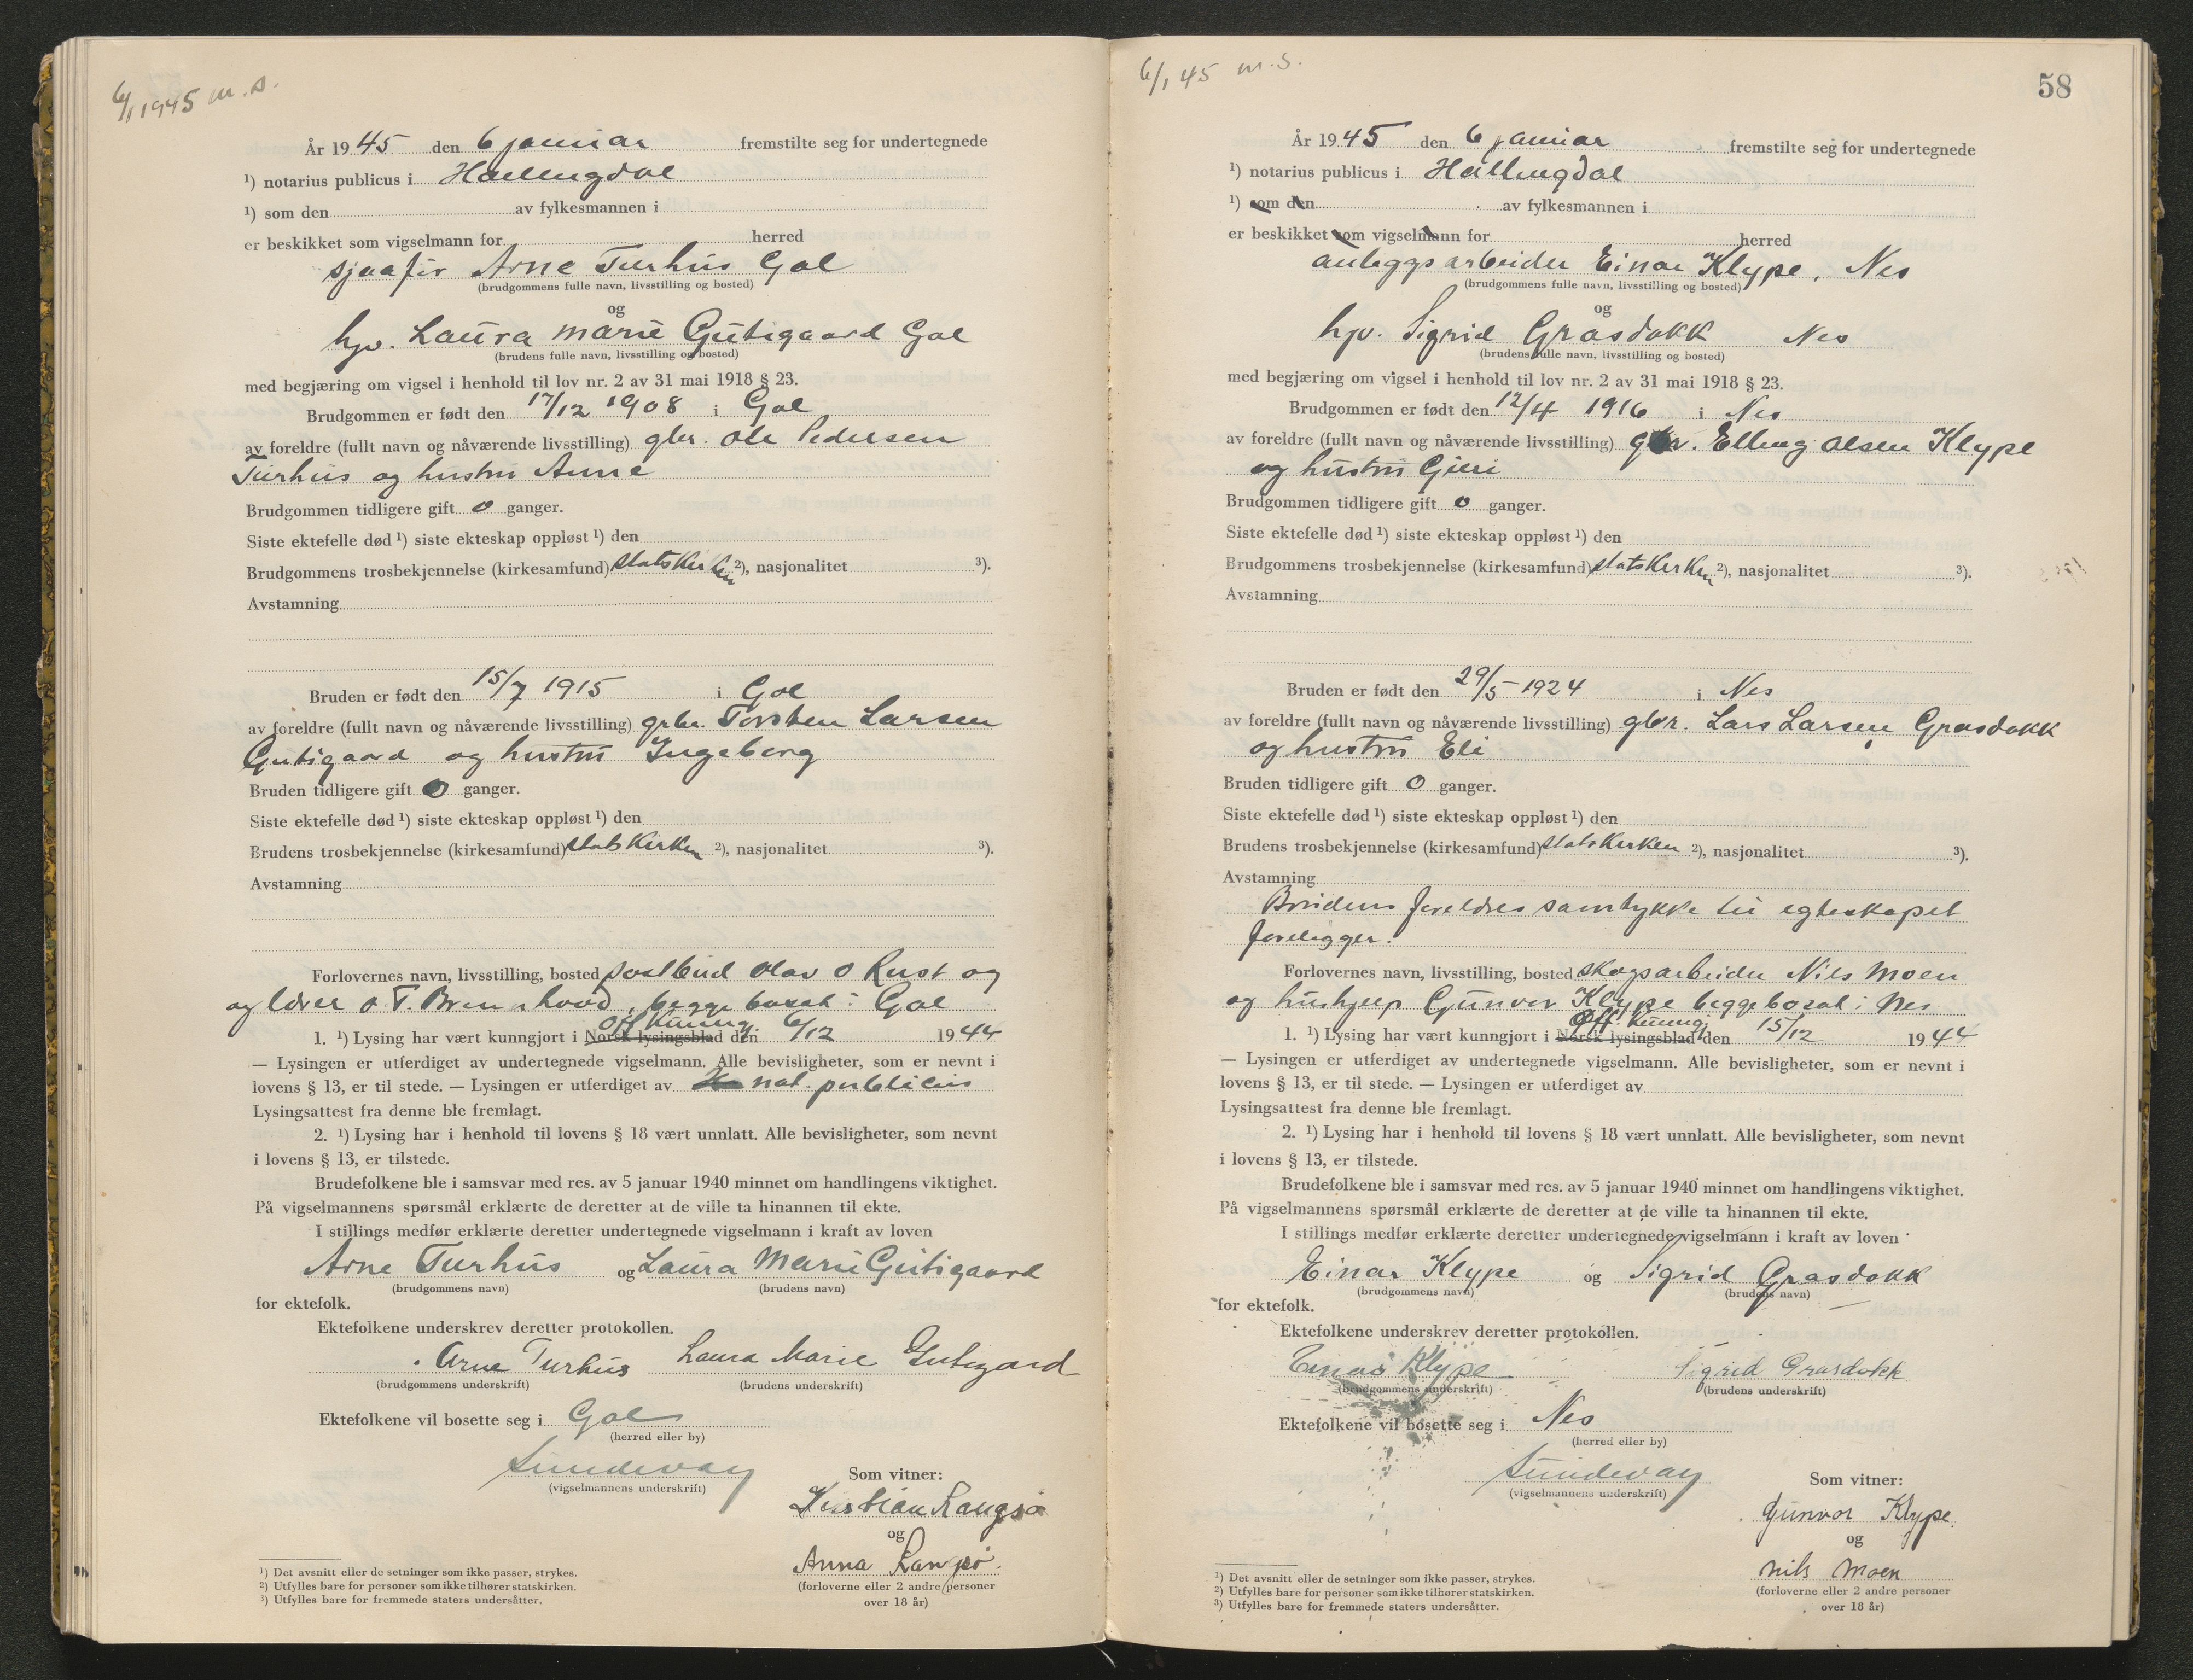 6/1 1945 m.s.
År 1945 den 6 januar fremstilte seg for undertegnede
¹) notarius publicus i Hallingdal
¹) som den av fylkesmannen i
er beskikket som vigselmann for herred
sjaafør Arne Turhus Gol
(brudgommens fulle navn, livsstilling og bosted)
og
hgv. Laura Marie Gutigaard Gol
(brudens fulle navn, livsstilling og bosted)
med begjæring om vigsel i henhold til lov nr. 2 av 31 mai 1918 § 23.
Brudgommen er født den 17/12 1908 i Gol
av foreldre (fullt navn og nåværende livsstilling) gbr. Ole Pedersen
Turhus og hustru Anne
Brudgommen tidligere gift 0 ganger.
Siste ektefelle død ¹) siste ekteskap oppløst ¹) den
Brudgommens trosbekjennelse (kirkesamfund) statskirken ²), nasjonalitet ³).
Avstamning
Bruden er født den 15/7 1915 i Gol
av foreldre (fullt navn og nåværende livsstilling) grbr. Torsten Larsen
Gutigaard og hustru Ingeborg
Bruden tidligere gift 0 ganger.
Siste ektefelle død ¹) siste ekteskap oppløst ¹) den
Brudens trosbekjennelse (kirkesamfund) statskirken ²), nasjonalitet ³).
Avstamning
Forlovernes navn, livsstilling, bosted postbud Olav O Rust og
og lærer O. T. begge bosat i Gol
Off. kunngj.
1. ¹) Lysing har vært kunngjort i Norsk lysingsblad den 6/12 1944
— Lysingen er utferdiget av undertegnede vigselmann. Alle bevisligheter, som er nevnt i
lovens § 13, er til stede. — Lysingen er utferdiget av not. publicus
Lysingsattest fra denne ble fremlagt.
2. ¹) Lysing har i henhold til lovens § 18 vært unnlatt. Alle bevisligheter, som nevnt
i lovens § 13, er tilstede.
Brudefolkene ble i samsvar med res. av 5 januar 1940 minnet om handlingens viktighet.
På vigselmannens spørsmål erklærte de deretter at de ville ta hinannen til ekte.
I stillings medfør erklærte deretter undertegnede vigselmann i kraft av loven
Arne Turhus og Laura Marie Gutigaard
(brudgommens navn) (brudens navn)
for ektefolk.
Ektefolkene underskrev deretter protokollen.
Arne Turhus Laura Marie Gutegard
(brudgommens underskrift) (brudens underskrift)
Ektefolkene vil bosette seg i Gol
(herred eller by)
Sundevag
(vigselmannens underskrift)
Som vitner:
Kristian Langsø
og
Anna Langsø.
(forloverne eller 2 andre personer
over 18 år)
¹) Det avsnitt eller de setninger som ikke passer, strykes.
²) Utfylles bare for personer som ikke tilhører statskirken.
³) Utfylles bare for fremmede staters undersåtter.
6/1 45 m.s.
58
År 1945 den 6 januar fremstilte seg for undertegnede
¹) notarius publicus i Hallingdal
¹) som den av fylkesmannen i
er beskikket som vigselmann for herred
anleggsarbeider Einar Klype, Nes
(brudgommens fulle navn, livsstilling og bosted)
og
hgv. Sigrid Grasdokk Nes
(brudens fulle navn, livsstilling og bosted)
med begjæring om vigsel i henhold til lov nr. 2 av 31 mai 1918 § 23.
Brudgommen er født den 12/4 1916 i Nes
av foreldre (fullt navn og nåværende livsstilling) gbr. Elling Olsen Klype
og hustru Guri
Brudgommen tidligere gift 0 ganger.
Siste ektefelle død ¹) siste ekteskap oppløst ¹) den
Brudgommens trosbekjennelse (kirkesamfund) statskirken ²), nasjonalitet ³).
Avstamning
Bruden er født den 29/5 1924 i Nes
av foreldre (fullt navn og nåværende livsstilling) gbr. Lars Larsen Grasdokk
og hustru Eli
Bruden tidligere gift 0 ganger.
Siste ektefelle død ¹) siste ekteskap oppløst ¹) den
Brudens trosbekjennelse (kirkesamfund) statskirken ²), nasjonalitet ³).
Avstamning
Brudens foreldres samtykke til egteskapet
foreligger.
Forlovernes navn, livsstilling, bosted skogsarbeider Nils Moen
og hushjelp Gunvor Klype begge bosat i Nes
Off. kunngj.
1. ¹) Lysing har vært kunngjort i Norsk lysingsblad den 15/12 1944
— Lysingen er utferdiget av undertegnede vigselmann. Alle bevisligheter, som er nevnt i
lovens § 13, er til stede. — Lysingen er utferdiget av
Lysingsattest fra denne ble fremlagt.
2. ¹) Lysing har i henhold til lovens § 18 vært unnlatt. Alle bevisligheter, som nevnt
i lovens § 13, er tilstede.
Brudefolkene ble i samsvar med res. av 5 januar 1940 minnet om handlingens viktighet.
På vigselmannens spørsmål erklærte de deretter at de ville ta hinannen til ekte.
I stillings medfør erklærte deretter undertegnede vigselmann i kraft av loven
Einar Klype og Sigrid Grasdokk
(brudgommens navn) (brudens navn)
for ektefolk.
Ektefolkene underskrev deretter protokollen.
Einar Klype Sigrid Grasdokk
(brudgommens underskrift) (brudens underskrift)
Ektefolkene vil bosette seg i Nes
(herred eller by)
Sundevag
(vigselmannens underskrift)
Som vitner:
Gunvor Klype
og
Nils Moen
(forloverne eller 2 andre personer
over 18 år)
¹) Det avsnitt eller de setninger som ikke passer, strykes.
²) Utfylles bare for personer som ikke tilhører statskirken.
³) Utfylles bare for fremmede staters undersåtter.